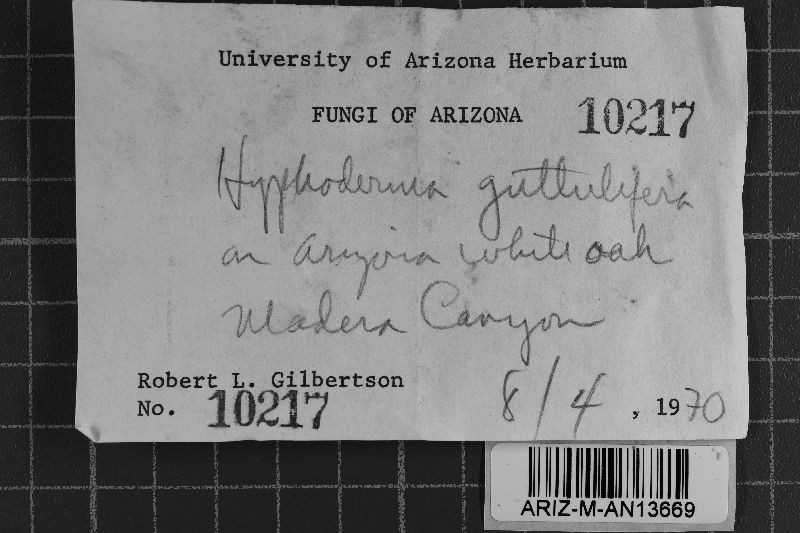 University of Arizona Herbarium
FUNGI OF ARIZONA 10217
Hyphoderma guttulifera
on Arizona white oak
Madera Canyon
Robert L. Gilbertson
No. 10217 8/4, 1970
ARIZ-M-AN13669